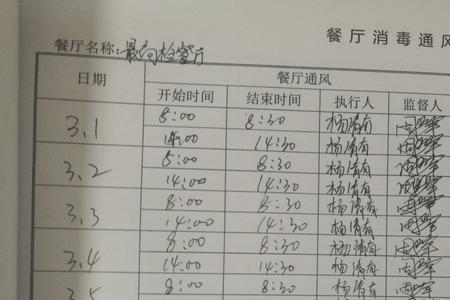 餐厅消毒通风
餐厅名称:最高检餐厅
日期 餐厅通风
开始时间 结束时间 执行人 监督人
3.1 8:00 8:30 杨清有
14:00 14:30 杨清有
3.2 8:00 8:30 杨清有
14:00 14:30 杨清有
3.3 8:00 8:30 杨清有
14:00 14:30 杨清有
3.4 8:00 8:30 杨清有
14:00 14:30 杨清有
3.5 8:00 8:30 杨清有